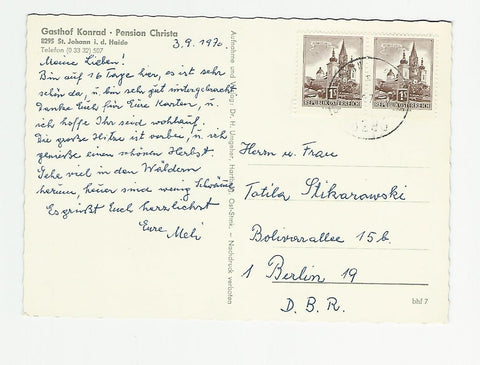 Gasthof Konrad · Pension Christa
8295 St. Johann i. d. Haide
Telefon (0 33 32) 507
3.9.1970.
Meine Lieben!
Bin auf 16 Tage hier, es ist sehr
schön da, u. bin sehr gut untergebracht.
Danke Euch für Eure Karten, u.
ich hoffe Ihr seid wohlauf.
Die große Hitze ist vorbei, u. ich
genieße einen schönen Herbst.
Gehe viel in den Wäldern
herum, heuer sind wenig
Es grüßt Euch herzlichst
Eure Meli
Aufnahme und Verlag: Dr. H. Ungeher, Hartberg, Ost-Stmk. — Nachdruck verboten
1S
REPUBLIK ÖSTERREICH
1S
REPUBLIK ÖSTERREICH
Herrn u. Frau
Totila Stikarowski
Bolivarallee 15b.
1 Berlin 19
D. B. R.
bhf 7